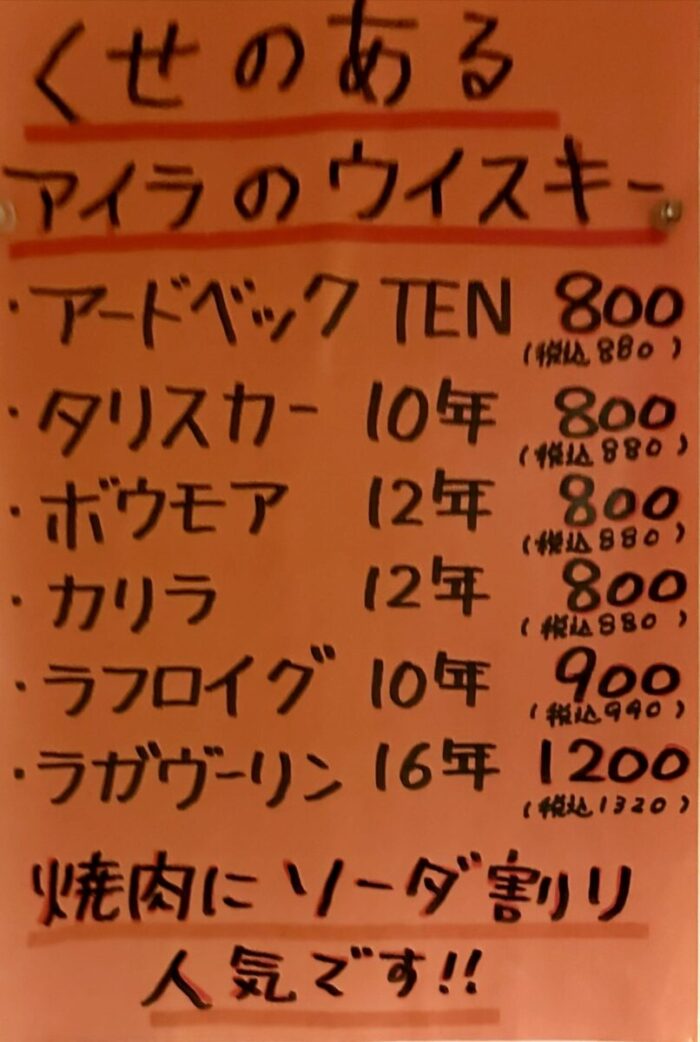 くせのある
アイラのウイスキー
・アードベック TEN 800
(税込880)
・タリスカー 10年 800
(税込880)
・ボウモア 12年 800
(税込880)
・カリラ 12年 800
(税込880)
・ラフロイグ 10年 900
(税込990)
・ラガヴーリン 16年 1200
(税込1320)
焼肉にソーダ割り
人気です!!